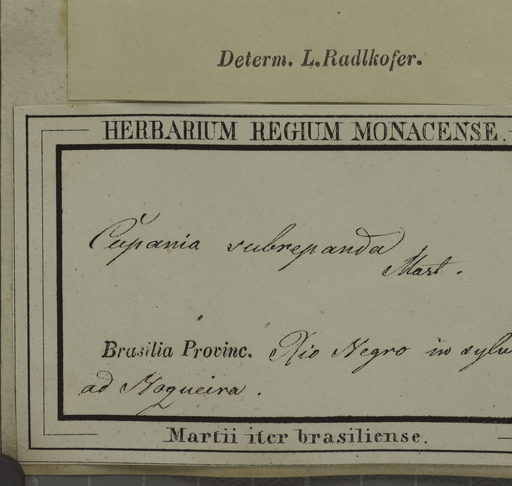 Determ. L. Radlkofer.
HERBARIUM REGIUM MONACENSE.
Cupania subrepanda
Mart.
Brasilia Provinc. Rio Negro in sylv
ad Nogueira.
Martii iter brasiliense.